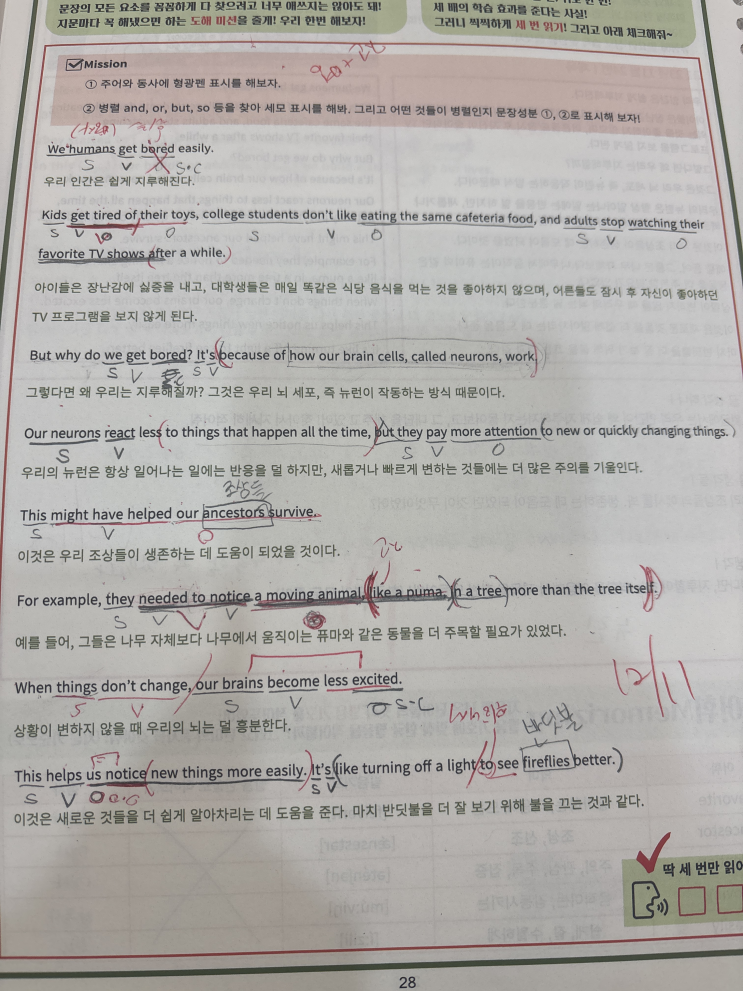 문장의 모든 요소를 꼼꼼하게 다 찾으려고 너무 애쓰지는 않아도 돼!
지문마다 꼭 해냈으면 하는 도해 미션을 줄게! 우리 한번 해보자!
세 배의 학습 효과를 준다는 사실!
그러니 찍찍하게 세 번 읽기! 그리고 아래 체크해줘~
Mission
① 주어와 동사에 형광펜 표시를 해보자.
② 병렬 and, or, but, so 등을 찾아 세모 표시를 해봐. 그리고 어떤 것들이 병렬인지 문장성분 ①, ②로 표시해 보자!
We humans get bored easily.
S V S·C
우리 인간은 쉽게 지루해진다.
Kids get tired of their toys, college students don't like eating the same cafeteria food, and adults stop watching their
S V O S V O S V O
favorite TV shows after a while.
아이들은 장난감에 싫증을 내고, 대학생들은 매일 똑같은 식당 음식을 먹는 것을 좋아하지 않으며, 어른들도 잠시 후 자신이 좋아하던
TV 프로그램을 보지 않게 된다.
But why do we get bored? It's because of how our brain cells, called neurons, work.
S V S V
그렇다면 왜 우리는 지루해질까? 그것은 우리 뇌 세포, 즉 뉴런이 작동하는 방식 때문이다.
Our neurons react less to things that happen all the time, but they pay more attention to new or quickly changing things.
S V S V O
우리의 뉴런은 항상 일어나는 일에는 반응을 덜 하지만, 새롭거나 빠르게 변하는 것들에는 더 많은 주의를 기울인다.
조상들
This might have helped our ancestors survive.
S V O
이것은 우리 조상들이 생존하는 데 도움이 되었을 것이다.
For example, they needed to notice a moving animal, like a puma, in a tree more than the tree itself.
S V V
예를 들어, 그들은 나무 자체보다 나무에서 움직이는 퓨마와 같은 동물을 더 주목할 필요가 있었다.
12/11
When things don't change, our brains become less excited.
S V S V S·C
상황이 변하지 않을 때 우리의 뇌는 덜 흥분한다.
반딧불
This helps us notice new things more easily. It's like turning off a light to see fireflies better.
S V O O·C S V
이것은 새로운 것들을 더 쉽게 알아차리는 데 도움을 준다. 마치 반딧불을 더 잘 보기 위해 불을 끄는 것과 같다.
딱 세 번만 읽어
28